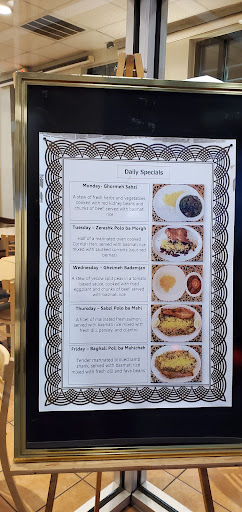 Daily Specials
Monday- Ghormeh Sabzi
A stew of fresh herbs and vegetables
cooked with red kidney beans and
chunks of beef, served with basmati
rice
Tuesday - Zereshk Polo ba Morgh
Half of a marinated oven cooked
Cornish Hen served with basmati rice
mixed with sauteed currants (sour red
berries)
Wednesday - Gheimeh Bademjan
A stew of yellow split peas in a tomato
based sauce, cooked with fried
eggplant and chunks of beef served
with basmati rice
Thursday - Sabzi Polo ba Mahi
A fillet of marinated fresh salmon,
served with basmati rice mixed with
fresh dill, parsley and cilantro
Friday - Baghali Poli ba Mahicheh
Tender marinated braised lamb
shank, served with basmati rice
mixed with fresh dill and fava beans